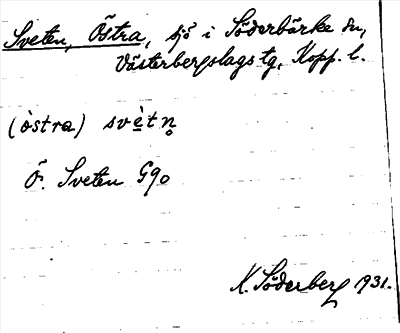 Sveten, Östra, sjö i Söderbärke sn,
Västerbergslags tg, Kopp. l.
(östra) svètn̥
Ö. Sveten G90
K. Söderberg 1931.